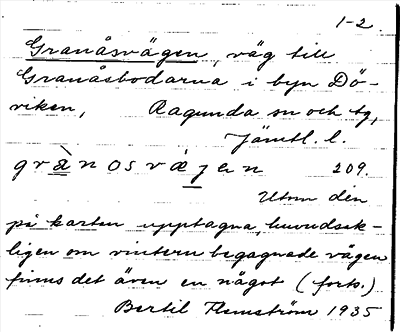 1-2.
Granåsvägen, väg till
Granåsbodarna i byn Dö-
viken, Ragunda sn och tg,
Jämtl. l.
grànosvájen 209.
Utom den
på kartan upptagna, huvudsak-
ligen om vintern begagnade vägen
finns det även en något (forts.)
Bertil Flemström 1935